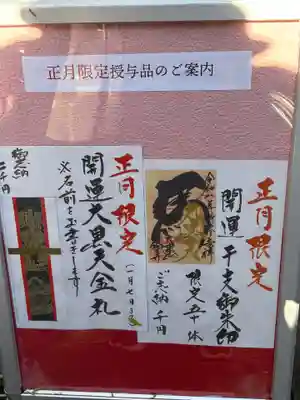 正月限定授与品のご案内
正月限定
開運 干支御朱印
限定五十体
ご奉納 千円
正月限定
開運大黒天金札
(一月七日まで)
お名前を玉書きします
御奉納
二千円